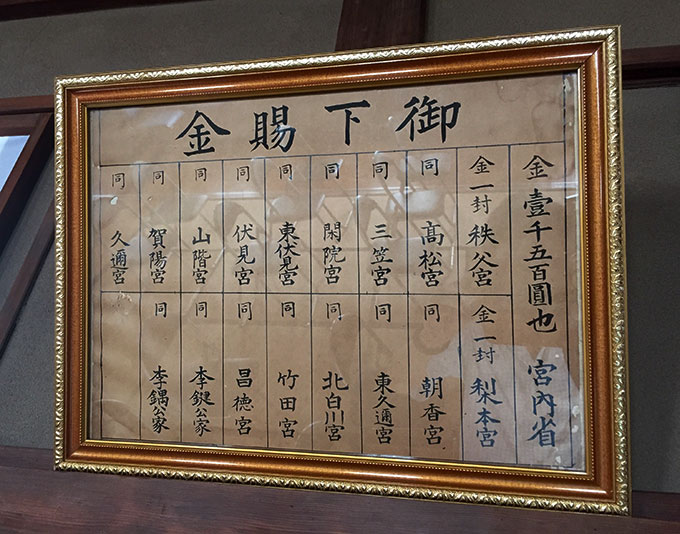 御下賜金
金壹千五百圓也 宮內省
金一封 秩父宮
同 高松宮
同 三笠宮
同 閑院宮
同 東伏見宮
同 伏見宮
同 山階宮
同 賀陽宮
同 久邇宮
金一封 梨本宮
同 朝香宮
同 東久邇宮
同 北白川宮
同 竹田宮
同 昌德宮
同 李鍵公家
同 李鍝公家